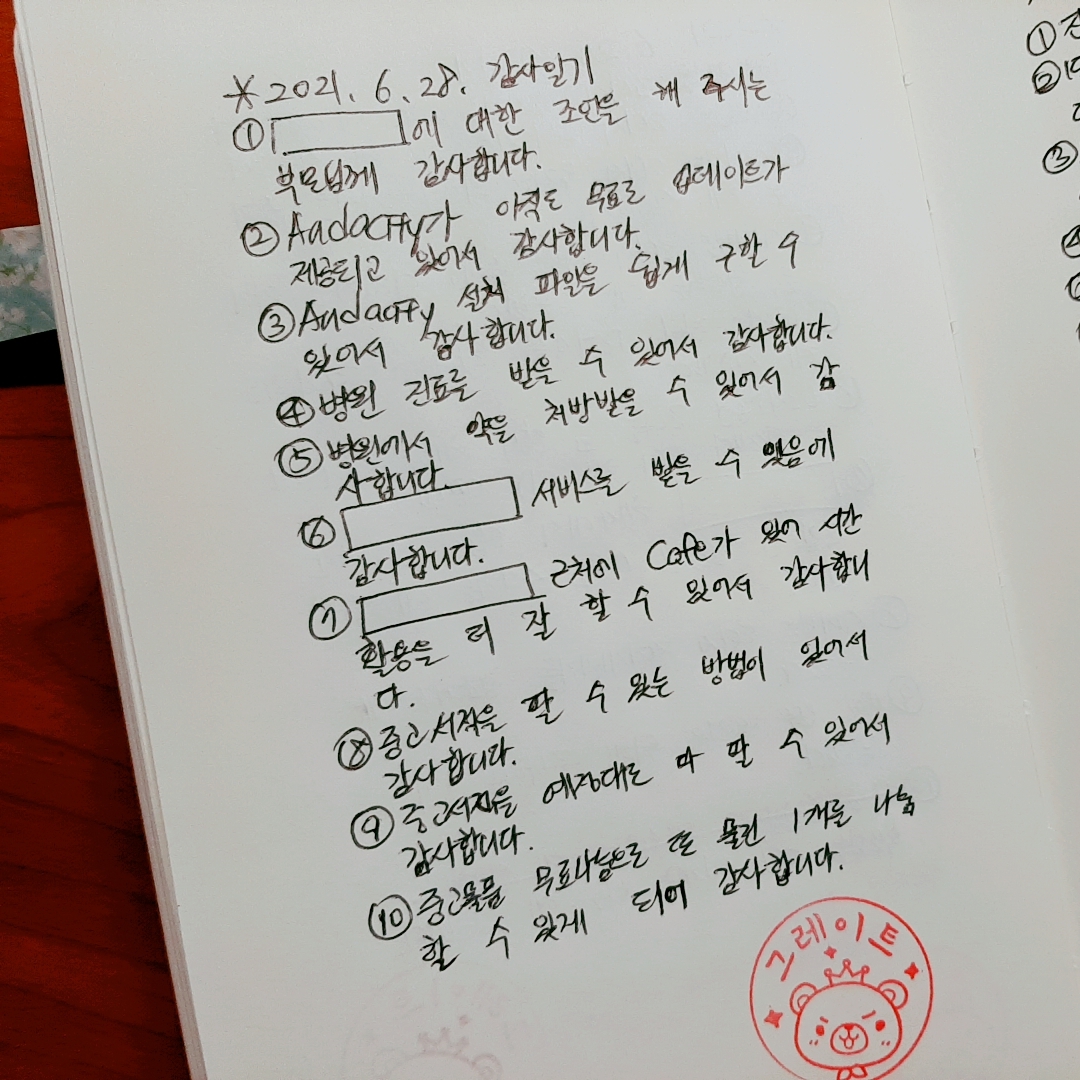 * 2021. 6. 28. 감사일기
① 에 대한 조언을 해 주시는
부모님께 감사합니다.
② Audacity가 아직도 무료로 업데이트가
제공되고 있어서 감사합니다.
③ Audacity 설치 파일을 쉽게 구할 수
있어서 감사합니다.
④ 병원 진료를 받을 수 있어서 감사합니다.
⑤ 병원에서 약을 처방받을 수 있어서 감
사합니다.
⑥ 서비스를 받을 수 있음에
감사합니다.
⑦ 근처에 Cafe가 있어 시간
활용을 더 잘 할 수 있어서 감사합니
다.
⑧ 중고서적을 팔 수 있는 방법이 있어서
감사합니다.
⑨ 중고서적을 예정대로 다 팔 수 있어서
감사합니다.
⑩ 중고물품 무료나눔으로 또 물린 1개를 나눔
할 수 있게 되어 감사합니다.
그레이트
①
②
③